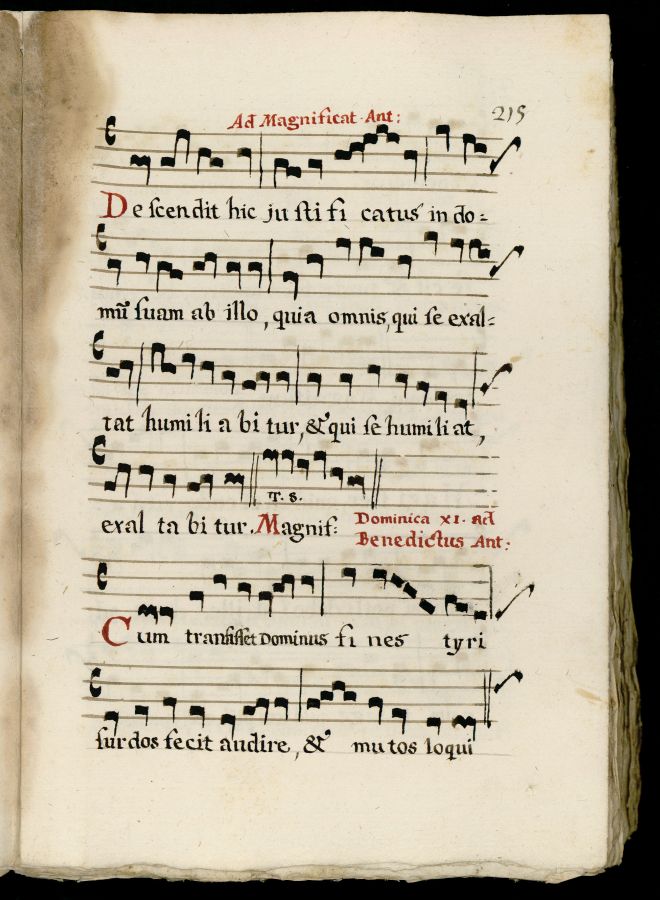 Ad Magnificat Ant: 215
De scendit hic ju sti fi catus in do=
mū suam ab illo, quia omnis, qui se exal=
tat humi li a bi tur, & qui se humi li at,
T. 8.
exal ta bi tur. Magnif: Dominica XI. ad
Benedictus Ant:
Cum transisset Dominus fi nes tyri
surdos fecit audire, & mutos loqui